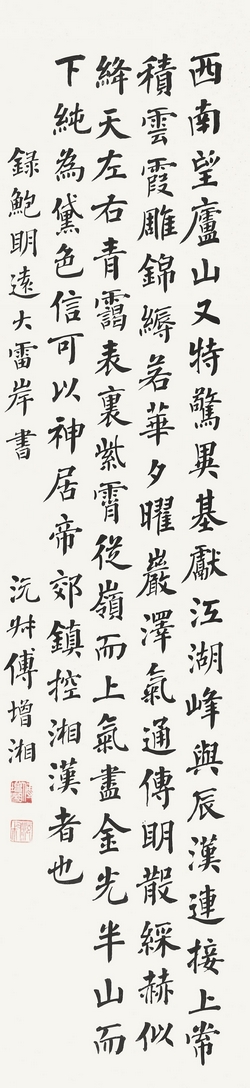 西南望廬山又特驚異基獻江湖峰與辰漢連接上常
積雲霞雕錦縟若華夕曜巖澤氣通傳明散綵赫似
絳天左右青靄表裏紫霄從嶺而上氣盡金光半山而
下純為黛色信可以神居帝郊鎮控湘漢者也
録鮑明遠大雷岸書
沅叔傅增湘